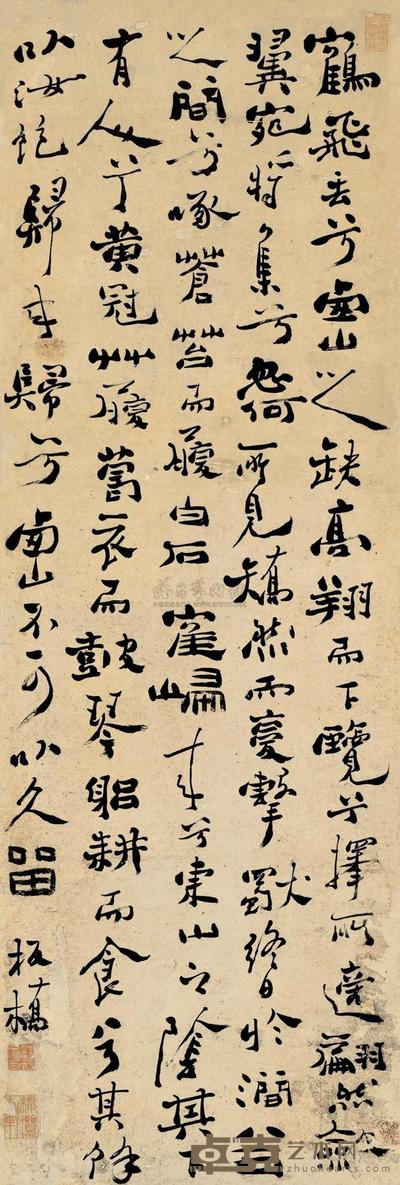 鶴飛去兮西山之缺高翔而下覽兮擇所適翩然斂
翼宛將集兮忽何所見矯然而復擊獨終日於澗谷
之間兮啄蒼苔而履白石鶴歸來兮東山之陰其下
有人兮黃冠艸履葛衣而鼓琴躬耕而食兮其餘
以汝飽歸來歸兮西山不可以久留
板橋
卓克艺术网